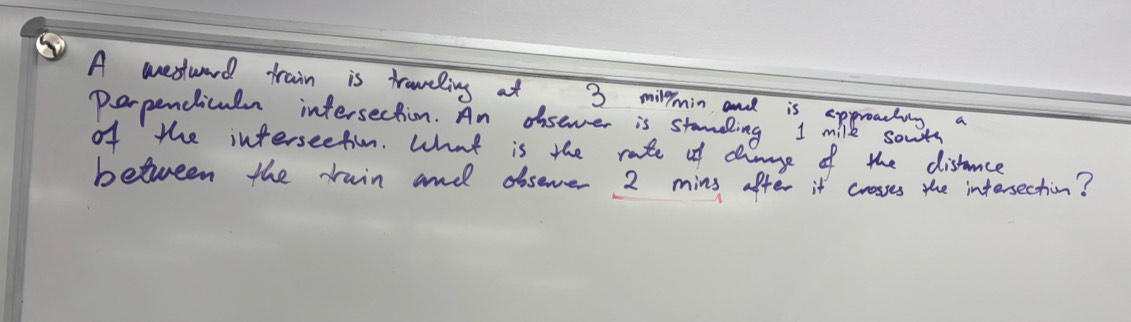 A westward train is traveling at 3 mile/min and is approaching a
perpendicular intersection. An observer is standing 1 mile south
of the intersection. What is the rate of change of the distance
between the train and observer 2 mins after it crosses the intersection?